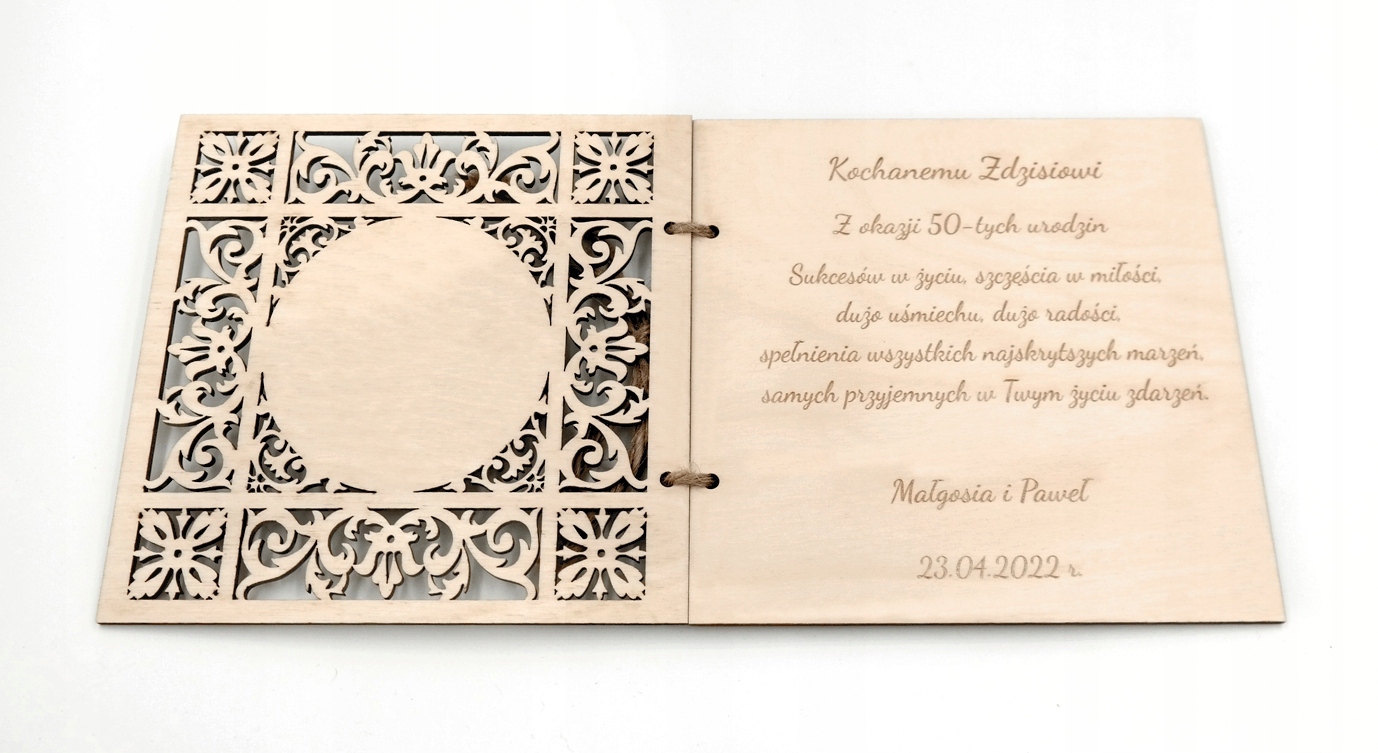 Kochanemu Zdzisiowi
Z okazji 50-tych urodzin
Sukcesów w życiu, szczęścia w miłości,
dużo uśmiechu, dużo radości,
spełnienia wszystkich najskrytszych marzeń,
samych przyjemnych w Twym życiu zdarzeń.
Małgosia i Paweł
23.04.2022 r.